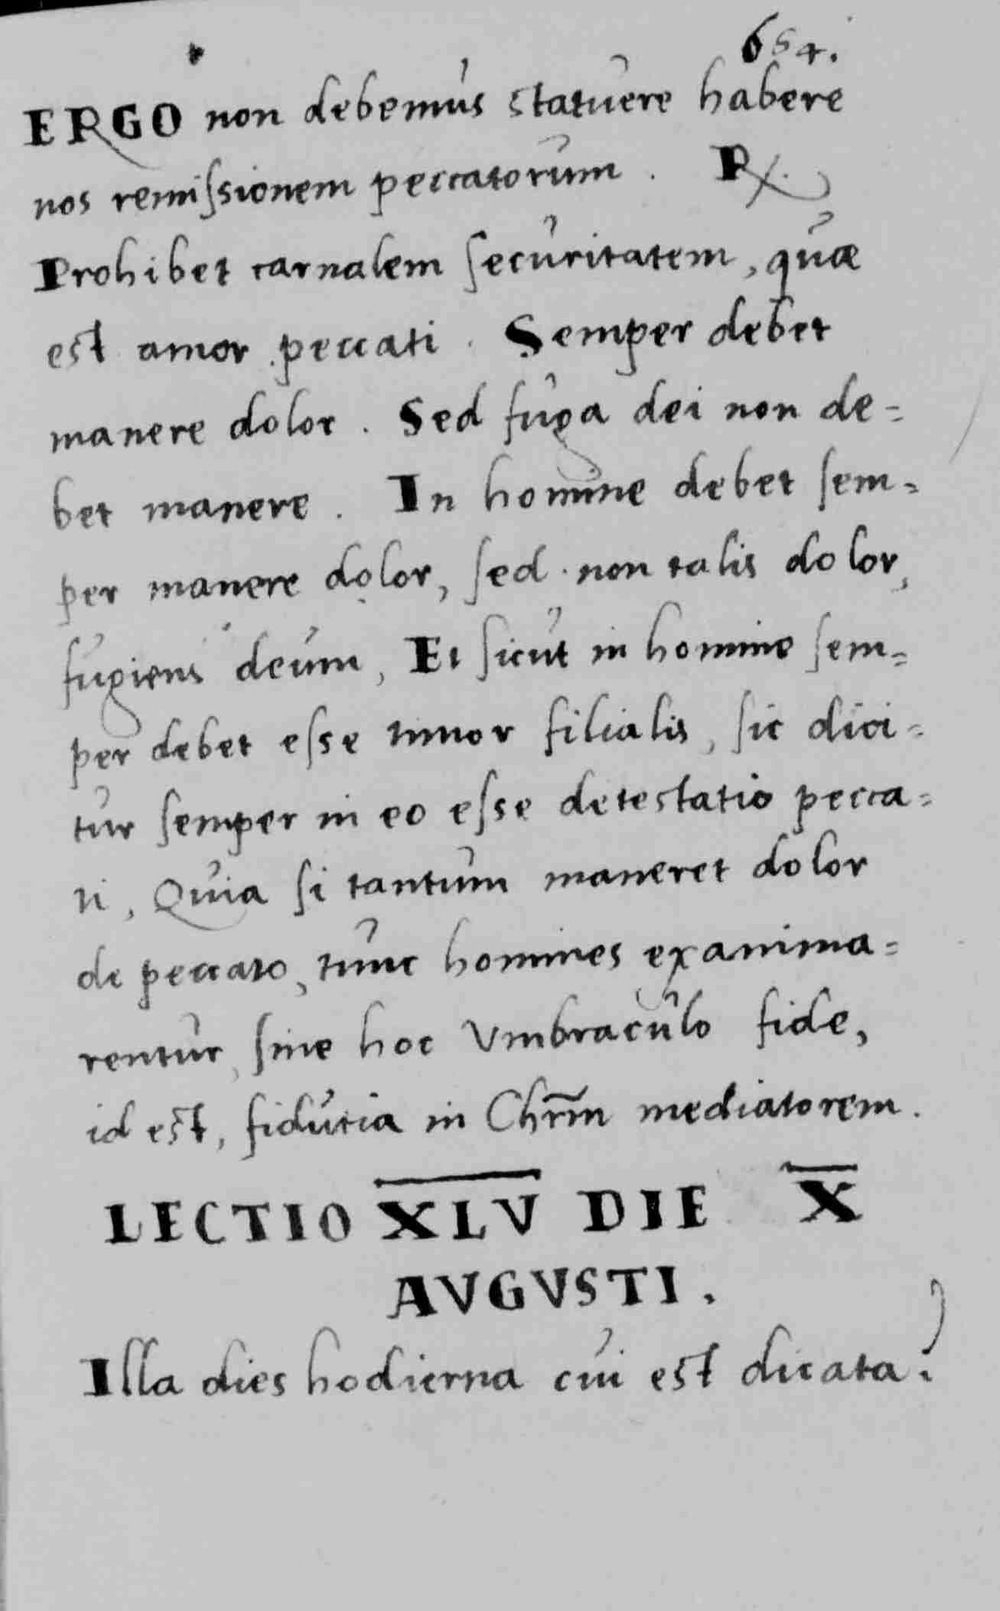 654.
ERGO non debemus statuere habere
nos remissionem peccatorum. ℟.
Prohibet carnalem securitatem, quae
est amor peccati. Semper debet
manere dolor. Sed fuga dei non de=
bet manere. In homine debet sem=
per manere dolor, sed non talis dolor,
fugiens deum, Et sicut in homine sem=
per debet esse timor filialis, sic dici=
tur semper in eo esse detestatio pecca=
ti, Quia si tantum maneret dolor
de peccato, tunc homines exanima=
rentur, sine hoc Vmbraculo fide,
id est, fidutia in Chr̅m mediatorem.
LECTIO X̅L̅V̅ DIE X̅
AVGVSTI.
Illa dies hodierna cui est dicata?